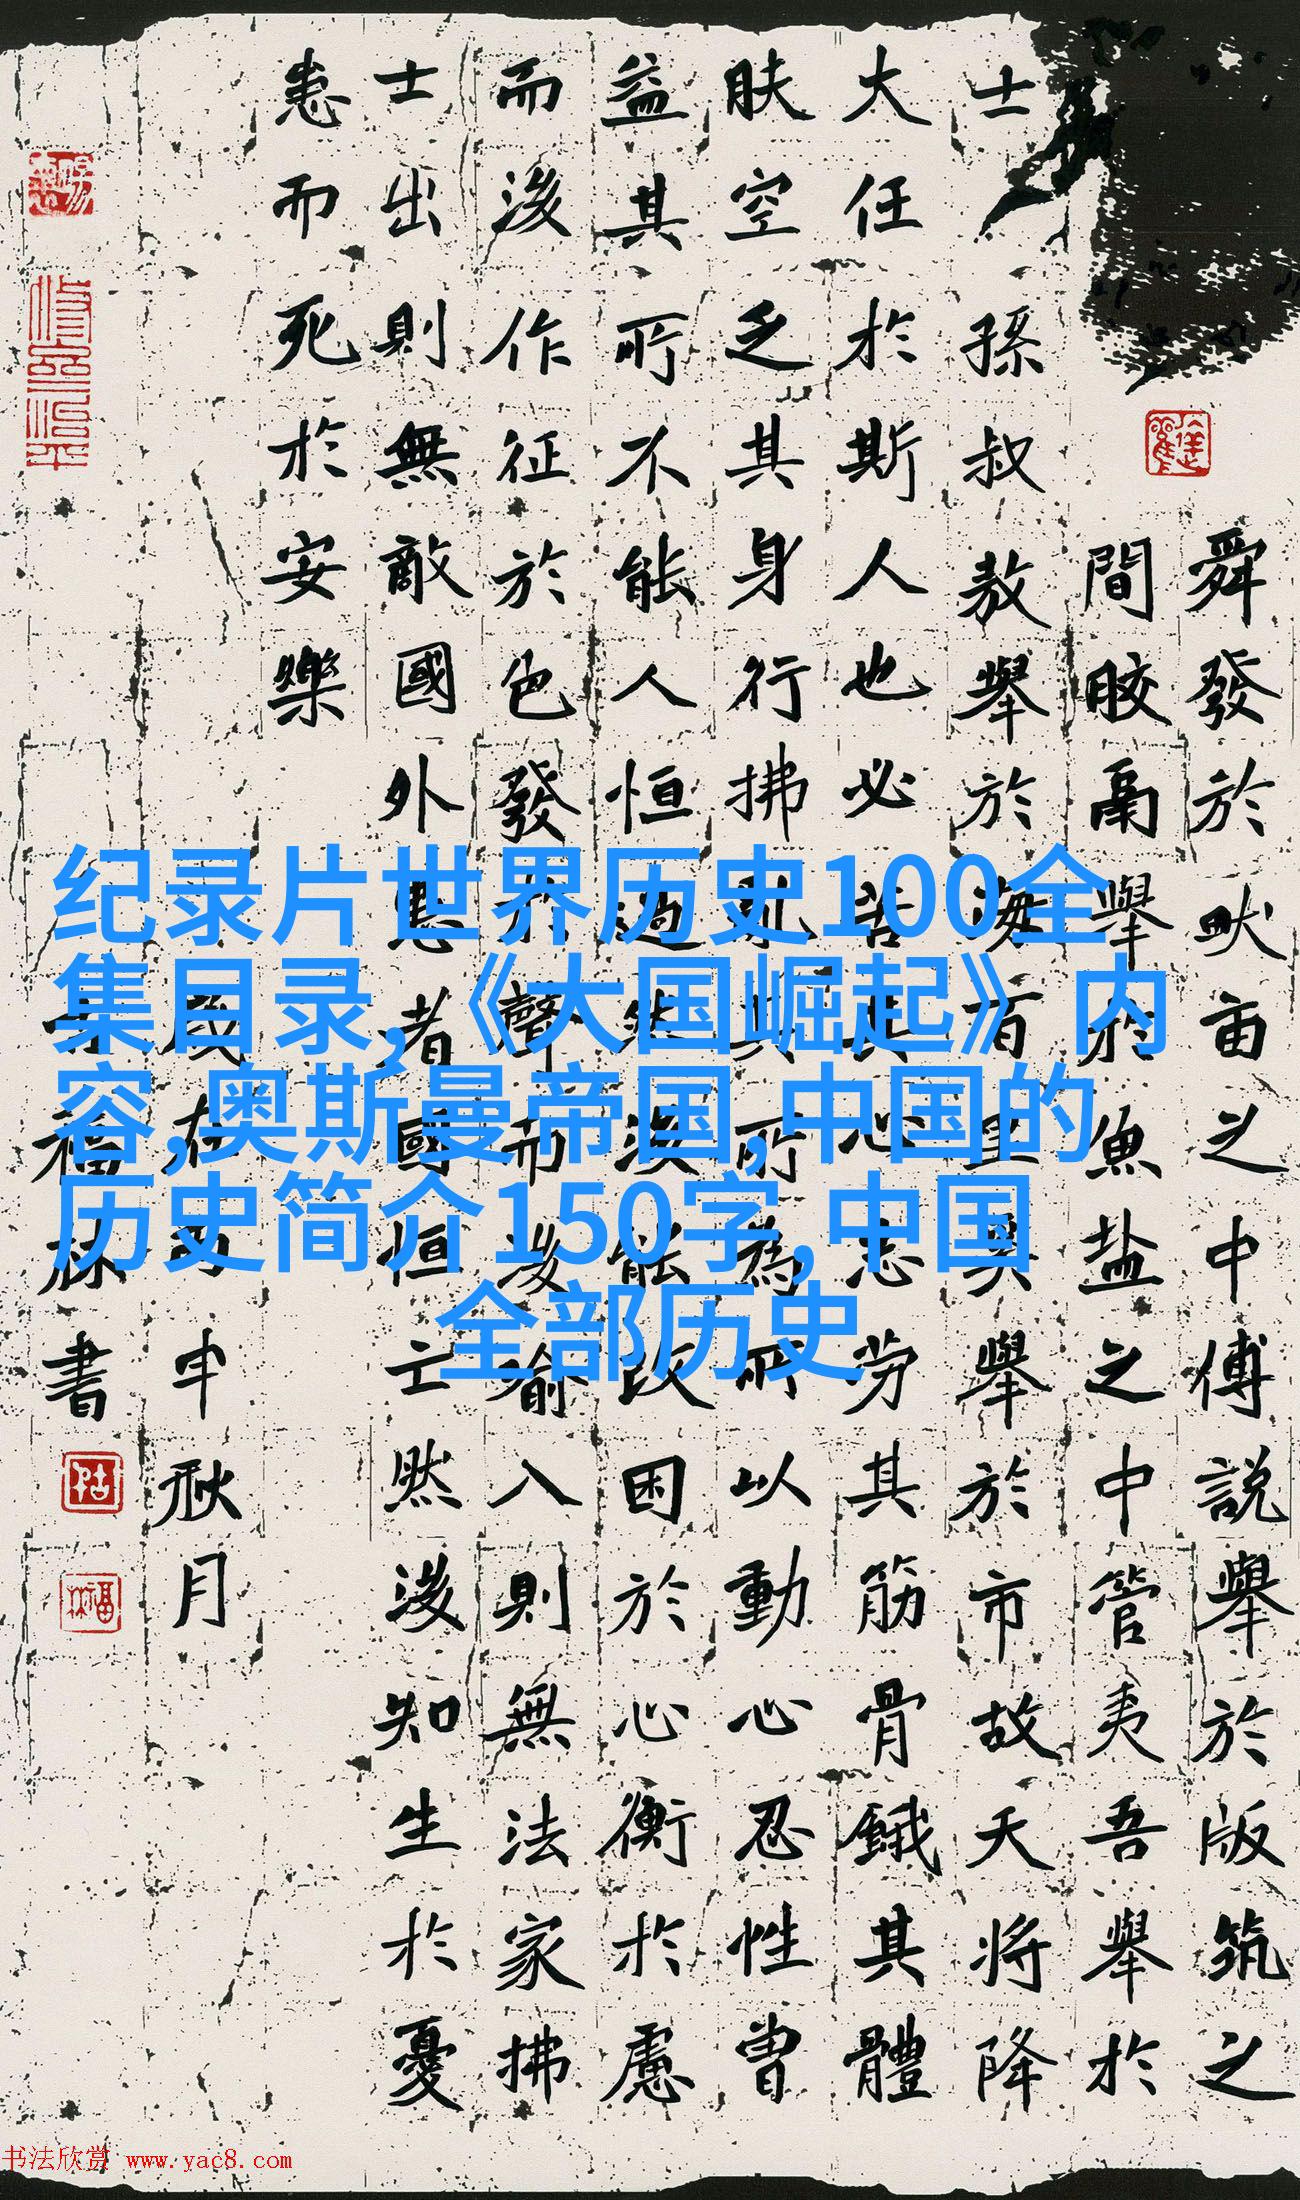 舜發於畎亩之中傅說舉於版筑之
間膠鬲舉於魚盐之中管夷吾舉於
士孫叔敖舉於海百里奚舉於市故天將降
大任於斯人也必苦其心志劳其筋骨餓其體
肤空乏其身行拂乱其所為所以動心忍性曾
益其所不能人恒過然後能改困於心衡於慮
而後作征於色發於聲而後喻入則無法家拂
士出則無敵國外患者國恒亡然後知生於憂
患而死於安樂
歲在申秋月
福林書
纪录片世界历史100全
集目录,《大国崛起》内
容,奥斯曼帝国,中国的
历史简介150字,中国
全部历史
书法欣赏 www.yac8.com